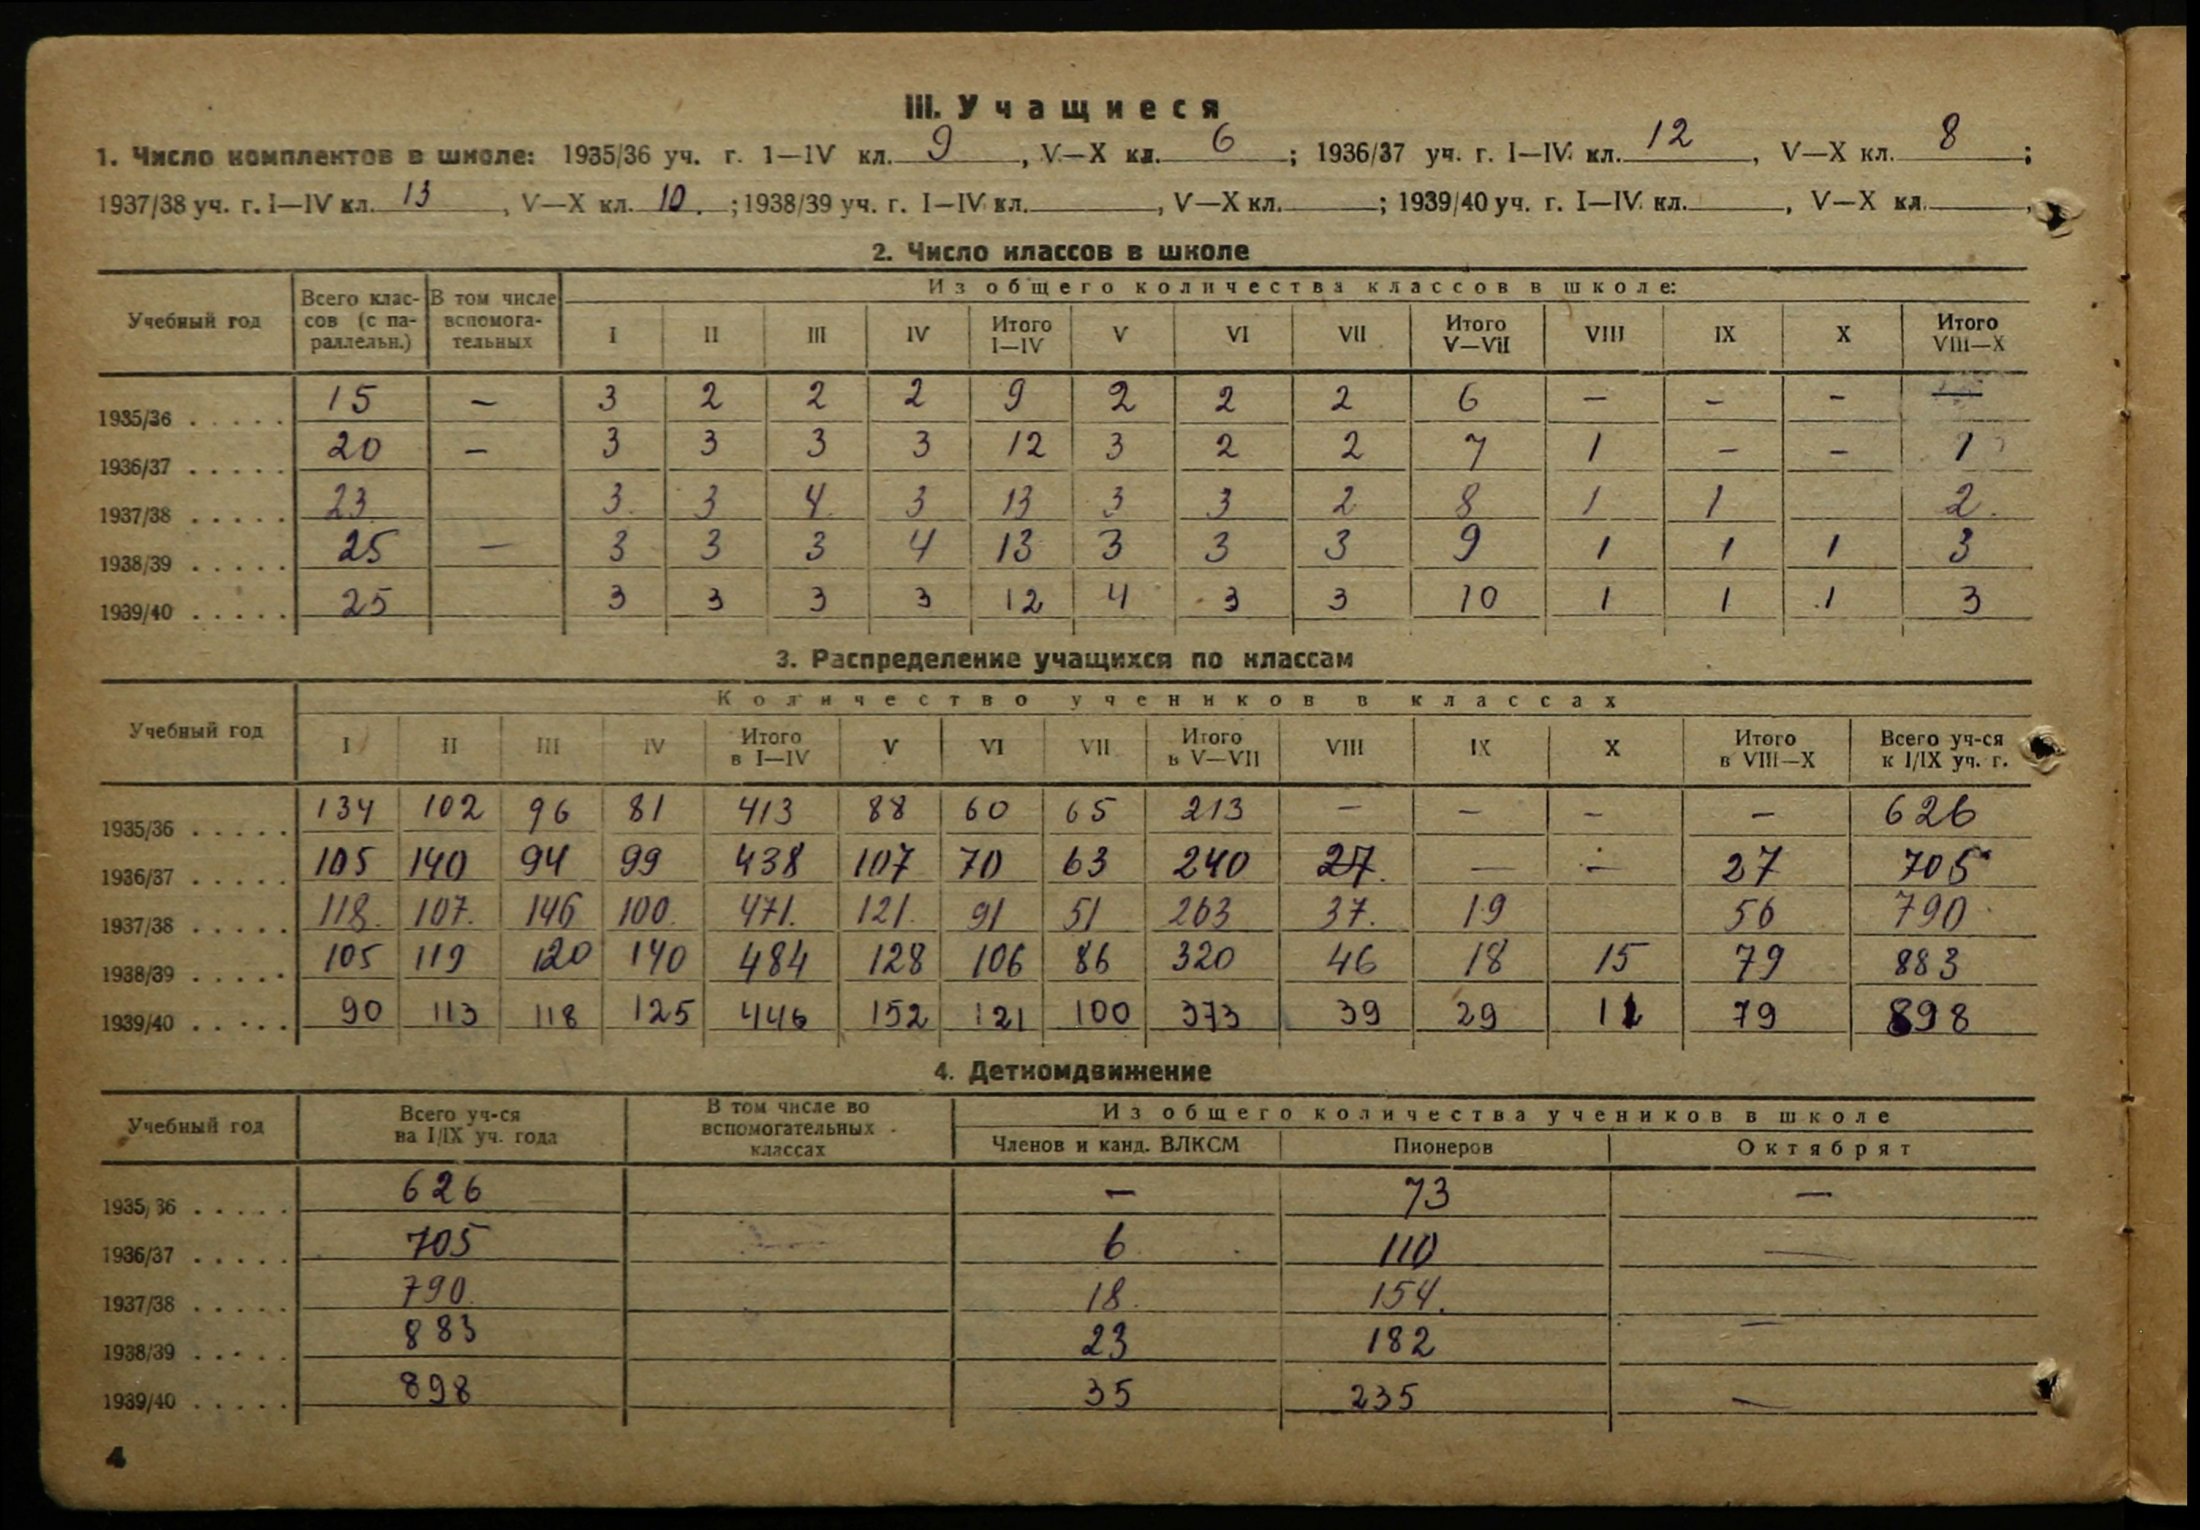 III. Учащиеся
1. Число комплектов в школе: 1935/36 уч. г. 1—IV кл. 9, V—X кл. 6; 1936/37 уч. г. I—IV кл. 12, V—X кл. 8;
1937/38 уч. г. I—IV кл. 13, V—X кл. 10.; 1938/39 уч. г. I—IV кл. , V—X кл. ; 1939/40 уч. г. I—IV кл. , V—X кл. ,
2. Число классов в школе
Учебный год Всего классов (с параллельн.) В том числе вспомогательных Из общего количества классов в школе:
I II III IV Итого I—IV V VI VII Итого V—VII VIII IX X Итого VIII—X
1935/36 ..... 15 — 3 2 2 2 9 2 2 2 6 — — —
1936/37 ..... 20 — 3 3 3 3 12 3 2 2 7 1 — — 1
1937/38 ..... 23 3 3 4 3 13 3 3 2 8 1 1 2
1938/39 ..... 25 — 3 3 3 4 13 3 3 3 9 1 1 1 3
1939/40 ..... 25 3 3 3 3 12 4 3 3 10 1 1 1 3
3. Распределение учащихся по классам
Учебный год Количество учеников в классах
I II III IV Итого в I—IV V VI VII Итого в V—VII VIII IX X Итого в VIII—X Всего уч-ся к I/IX уч. г.
1935/36 ..... 134 102 96 81 413 88 60 65 213 — — — — 626
1936/37 ..... 105 140 94 99 438 107 70 63 240 27. — — 27 705
1937/38 ..... 118. 107. 146 100. 471. 121. 91 51 263 37. 19 56 790
1938/39 ..... 105 119 120 140 484 128 106 86 320 46 18 15 79 883
1939/40 ..... 90 113 118 125 446 152 121 100 373 39 29 11 79 898
4. Деткомдвижение
Учебный год Всего уч-ся на I/IX уч. года В том числе во вспомогательных классах Из общего количества учеников в школе
Членов и канд. ВЛКСМ Пионеров Октябрят
1935/36 ..... 626 — 73 —
1936/37 ..... 705 6 110 —
1937/38 ..... 790. 18. 154.
1938/39 ..... 883 23 182 —
1939/40 ..... 898 35 235 —
4